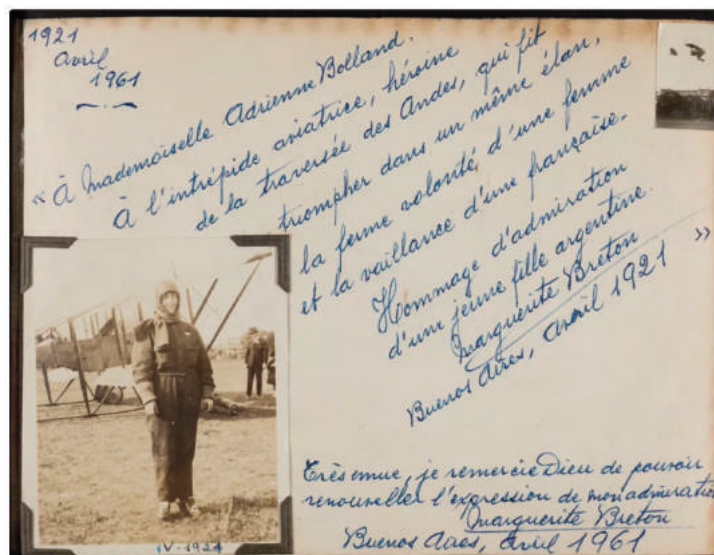 1921
avril
1961
« À Mademoiselle Adrienne Bolland.
À l'intrépide aviatrice, héroïne
de la traversée des Andes, qui fit
triompher dans un même élan,
la ferme volonté d'une femme
et la vaillance d'une française.
Hommage d'admiration
d'une jeune fille argentine.
Marguerite Breton »
Buenos Aires, avril 1921
Très emue, je remercie Dieu de pouvoir
renouveller l'expression de mon admiration
Marguerite Breton
Buenos Aires, avril 1961
IV-1921